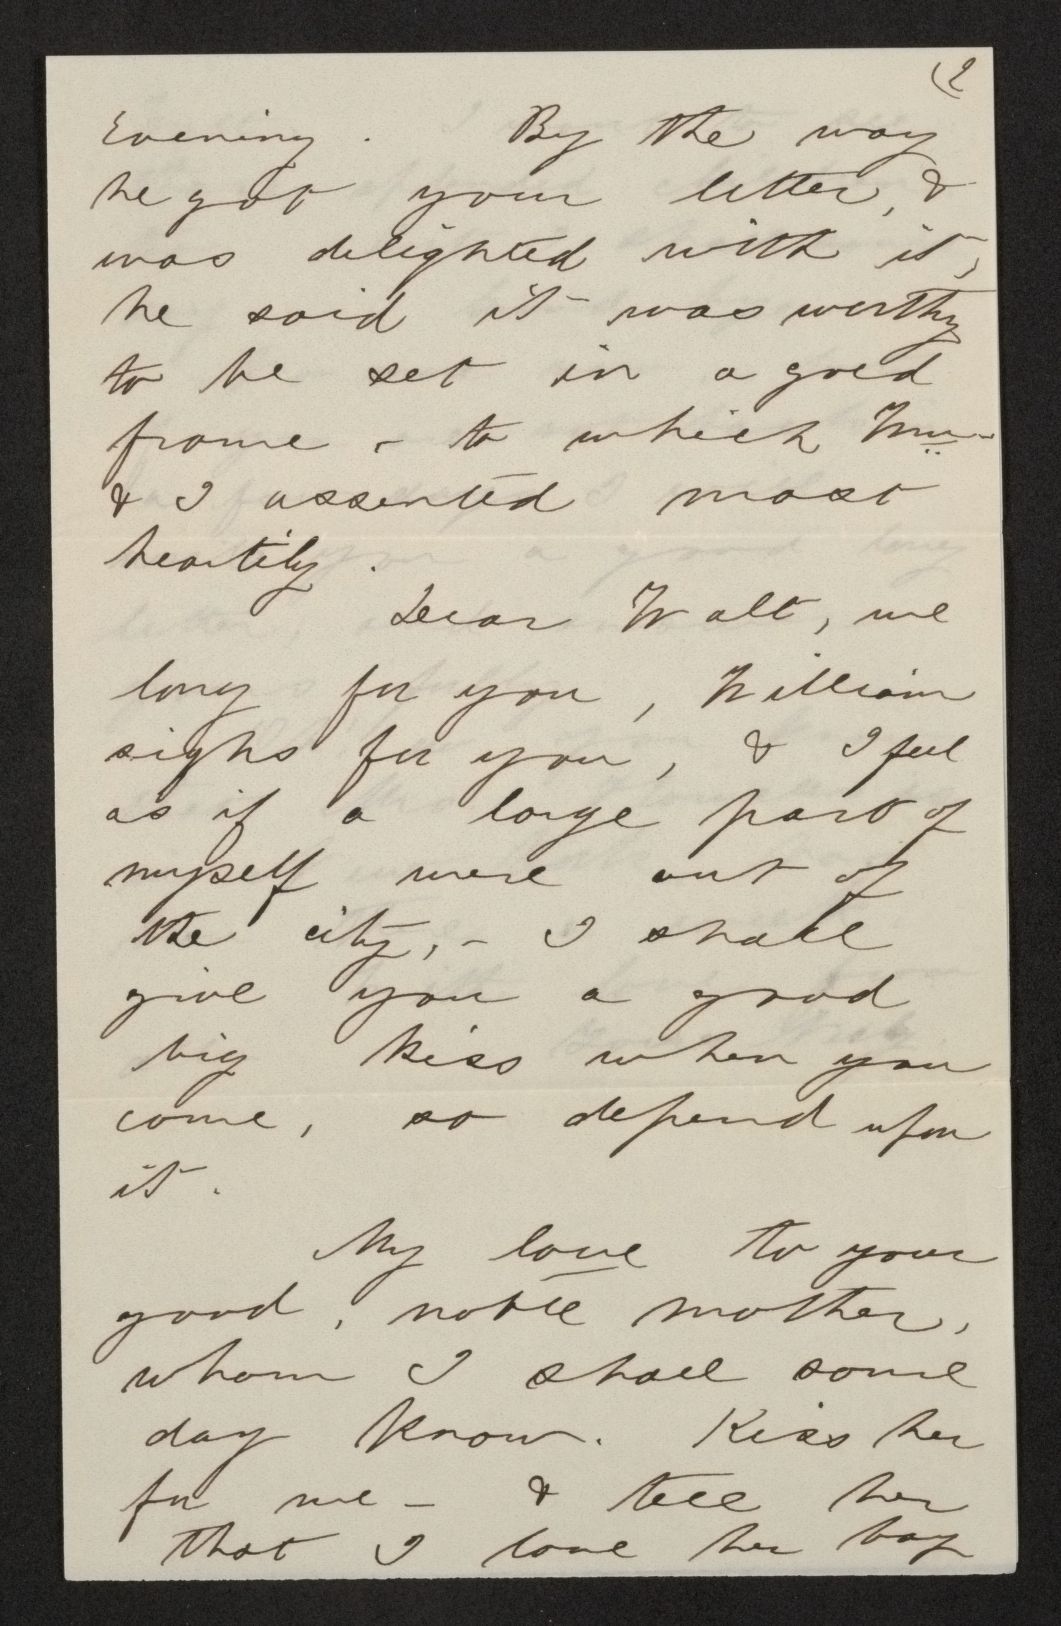 (2
Evening. By the way
he got your letter, &
was delighted with it,
he said it was worthy
to be set in a good
frame, - to which Wm
& I assented most
heartily.
Dear Walt, we
long for you, William
sighs for you, & I feel
as if a large part of
myself were out of
the city, - I shall
give you a good
big kiss when you
come, so depend upon
it.
My love to your
good, noble mother,
whom I shall some
day know. Kiss her
for me - & tell her
that I love her boy